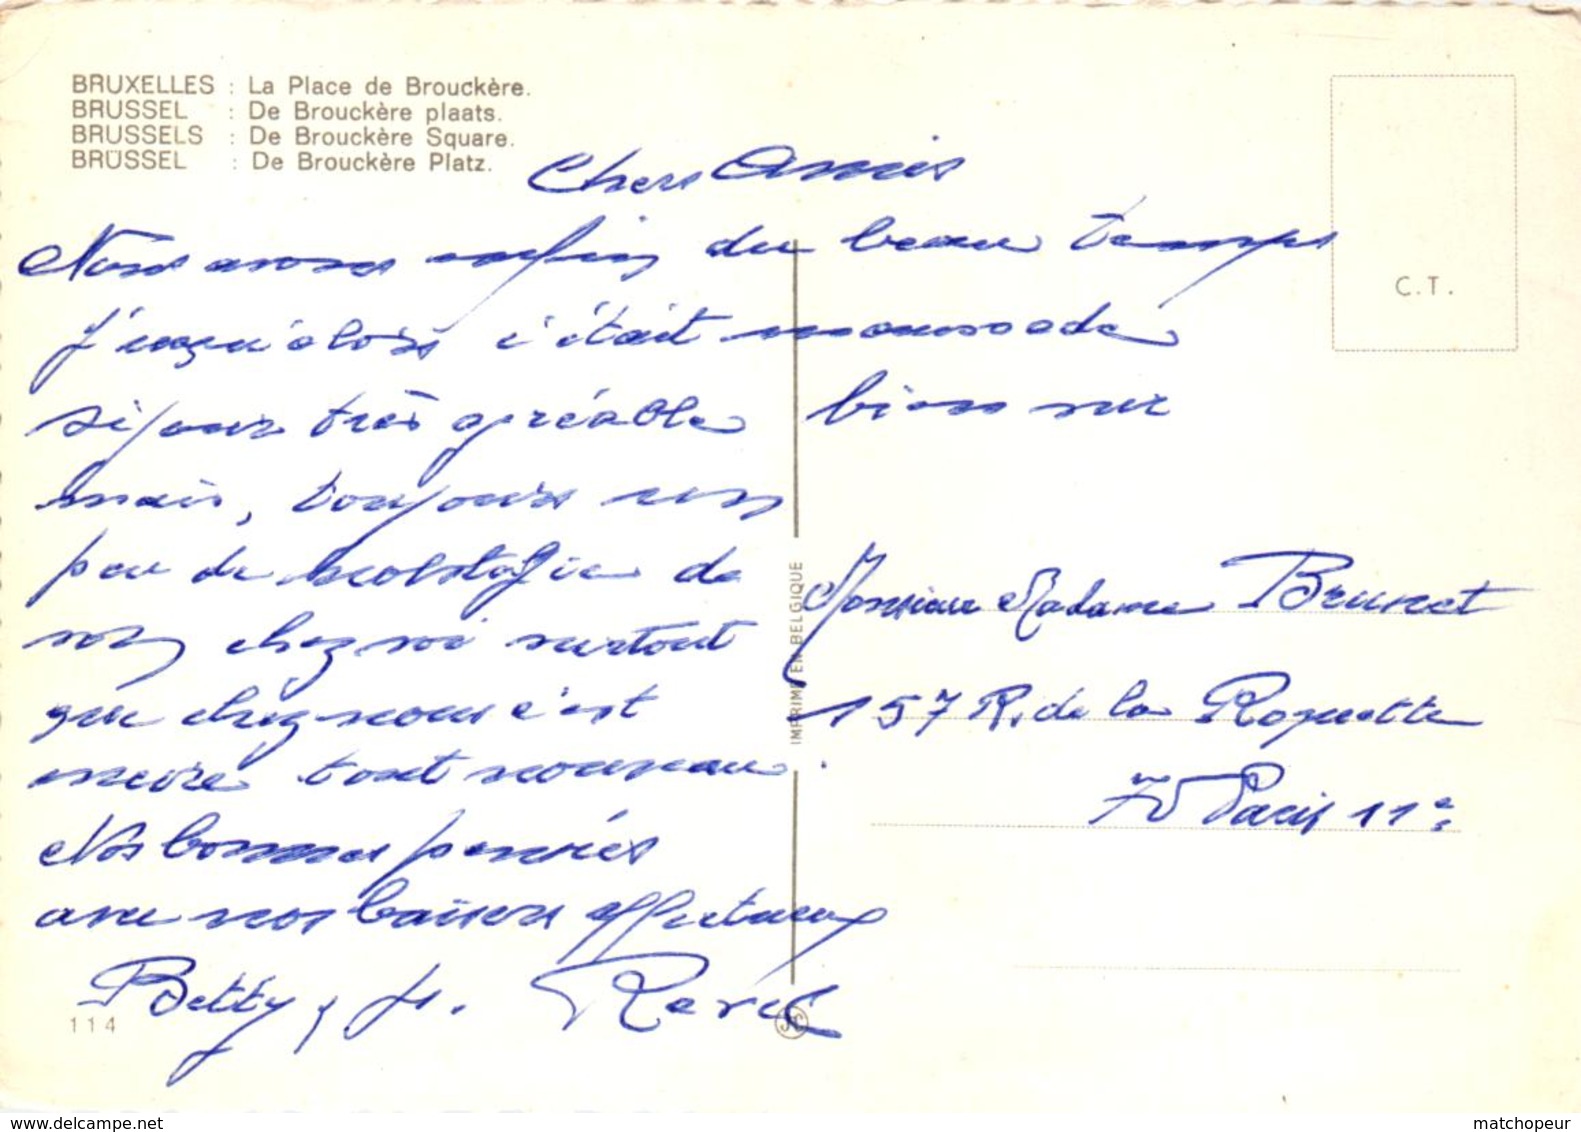 BRUXELLES : La Place de Brouckère.
BRUSSEL : De Brouckère plaats.
BRUSSELS : De Brouckère Square.
BRÜSSEL : De Brouckère Platz.
C.T.
Chers Amis
Nous avons enfin du beau temps
j'usqu'alors c'était maussade
séjour très agréable bien sur
mais, toujours un
peu de nolstalgie de
son chez soi surtout
que chez nous c'est
encore tout nouveau.
Nos bonnes pensées
avec nos baisers affectueux
Betty,
114
IMPRIMÉ EN BELGIQUE
Monsieur Madame Brunet
157 R. de la Roquette
75 Paris 11e
matchopeur